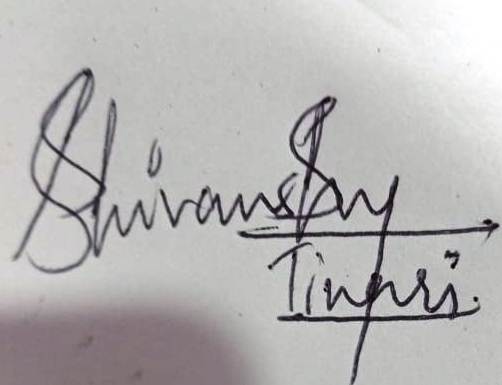 Shivanshy
Tingri.